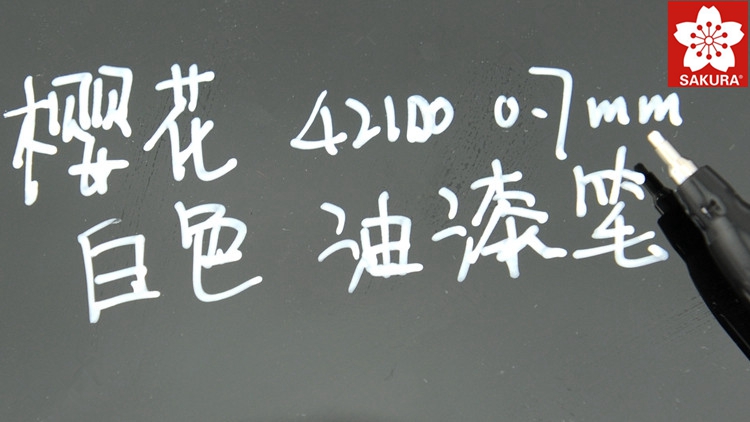 SAKURA®
樱花 42100 0.7mm
白色 油漆笔